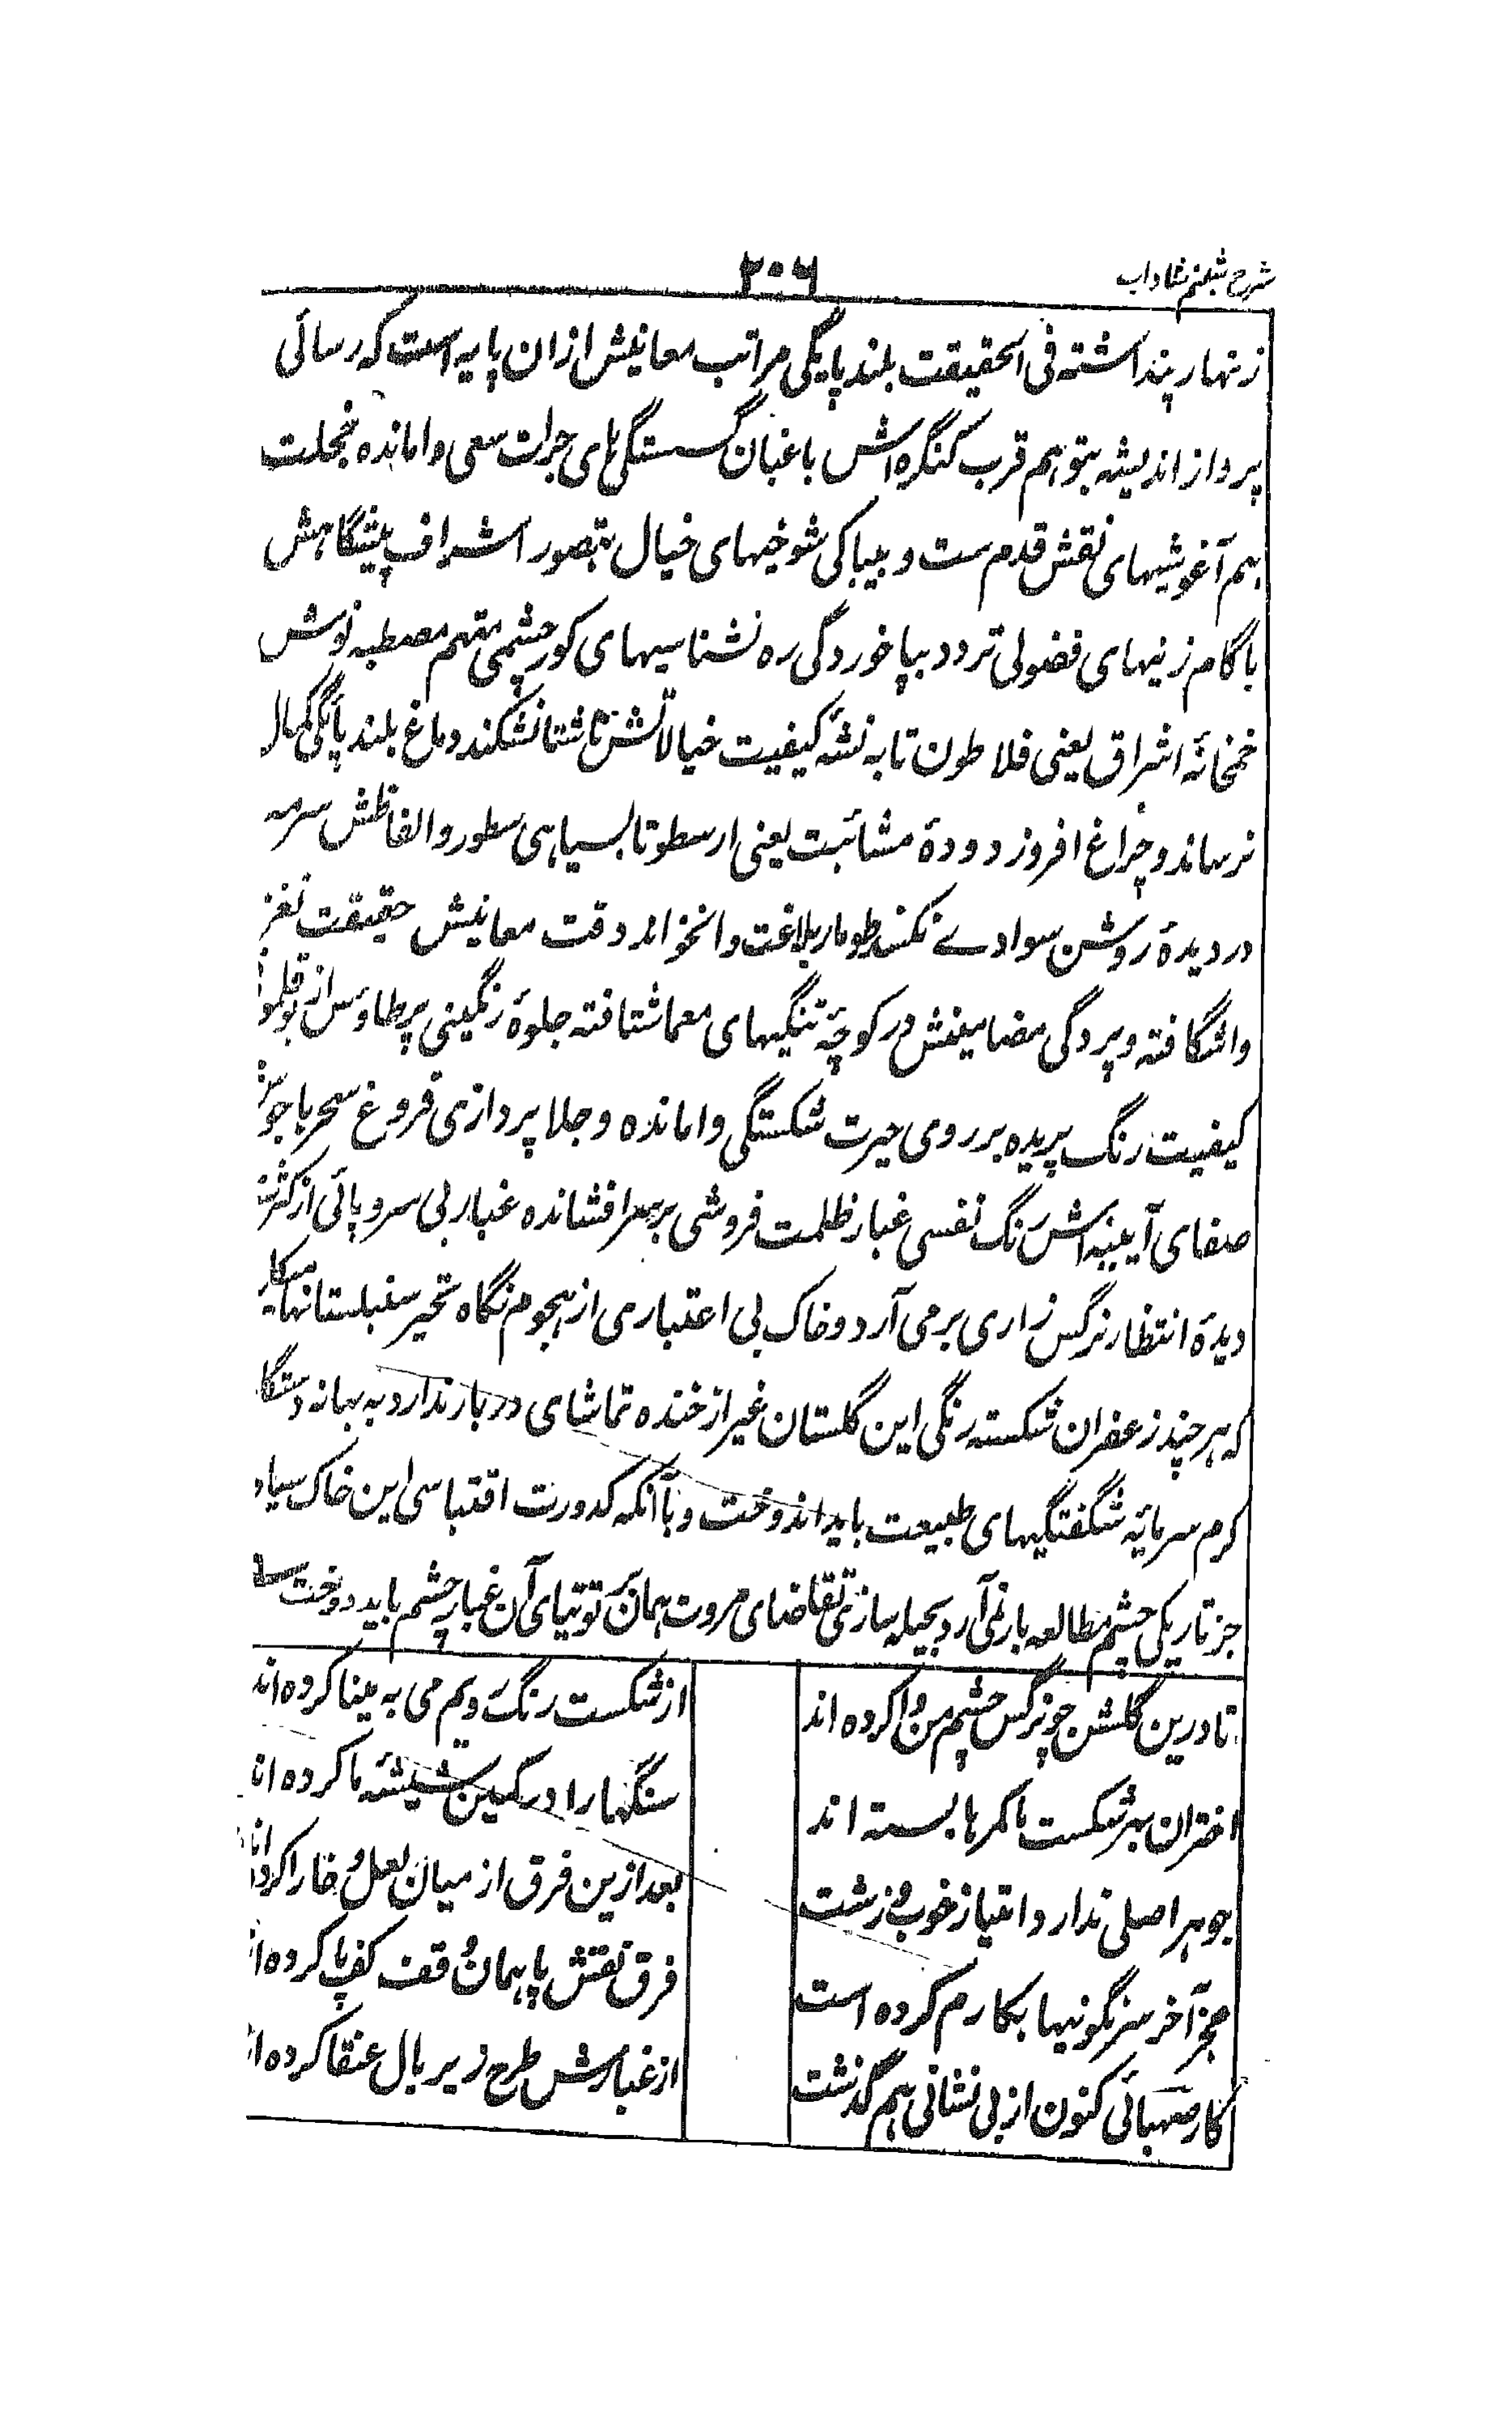 شرح شبنم شاداب
۲۰۶
زنهار پنداشته فی الحقیقت بلند پایگی مراتب معانیش ازان پایه است که رسائی
پرواز اندیشه بتوهم قرب کنگره اش باغبان گسستگی های جرات سعی وامانده خجلت
هم آغوشیهای نقش قدم ست و بیباکی شوخیهای خیال بتصور اشراف پیشگاهش
با گام زنیهای فضولی تردد بپا خوردگی ره نشناسیهای کور چشمی متهم مصطبه نوش
خمخانهٔ اشراق یعنی فلاطون تا به نشهٔ کیفیت خیالاتش ناشتا نشکند دماغ بلند پایگی کمال
نرساند و چراغ افروز دودهٔ مشائیت یعنی ارسطو تا بسیاهی سطور و الفاظش سرمه
در دیدهٔ روشن سوادے نکند طومار بلاغت وانخواند دقت معانیش حقیقت نغز
واشگافته و پردگی مضامینش در کوچهٔ تنگیهای معما شتافته جلوهٔ رنگینی پر طاوس از
کیفیت رنگ پریده بر روی حیرت شکستگی وامانده و جلا پردازی فروغ سحر با
صفای آیینه اش رنگ نفسی غبار ظلمت فروشی بر سر افشانده غبار بی سروپائی از کثرت
دیدهٔ انتظار نرگس زاری برمی آرد و خاک بی اعتباری از هجوم نگاه تحیر سنبلستانها میکار
که هر چند زعفران شکسته رنگی این گلستان غیر از خنده تماشای در بار ندارد به بهانه دستگا
کرم سرمایهٔ شگفتگیهای طبیعت باید اندوخت و با آنکه کدورت اقتباسی این خاک سیاه
جز تاریکی چشم مطالعه بار نمی آرد بحیله سازی تقاضای مروت همان بر توتیای آن غبار چشم باید دوخت
تا درین گلشن چو نرگس چشم من وا کرده اند
از شکست رنگ رویم می به مینا کرده اند
اختران بهر شکست ما کمرها بسته اند
سنگها را در کمین شیشهٔ ما کرده اند
جوهر اصلی ندارد امتیاز خوب و زشت
بعد ازین فرق از میان لعل و خارا کرده اند
عجز آخر سرنگونیها بکارم کرده است
فرق نقش پا همان وقف کف پا کرده ا
کار صهبائی کنون از بی نشانی هم گذشت
از غبارش طرح زیر بال عنقا کرده ا